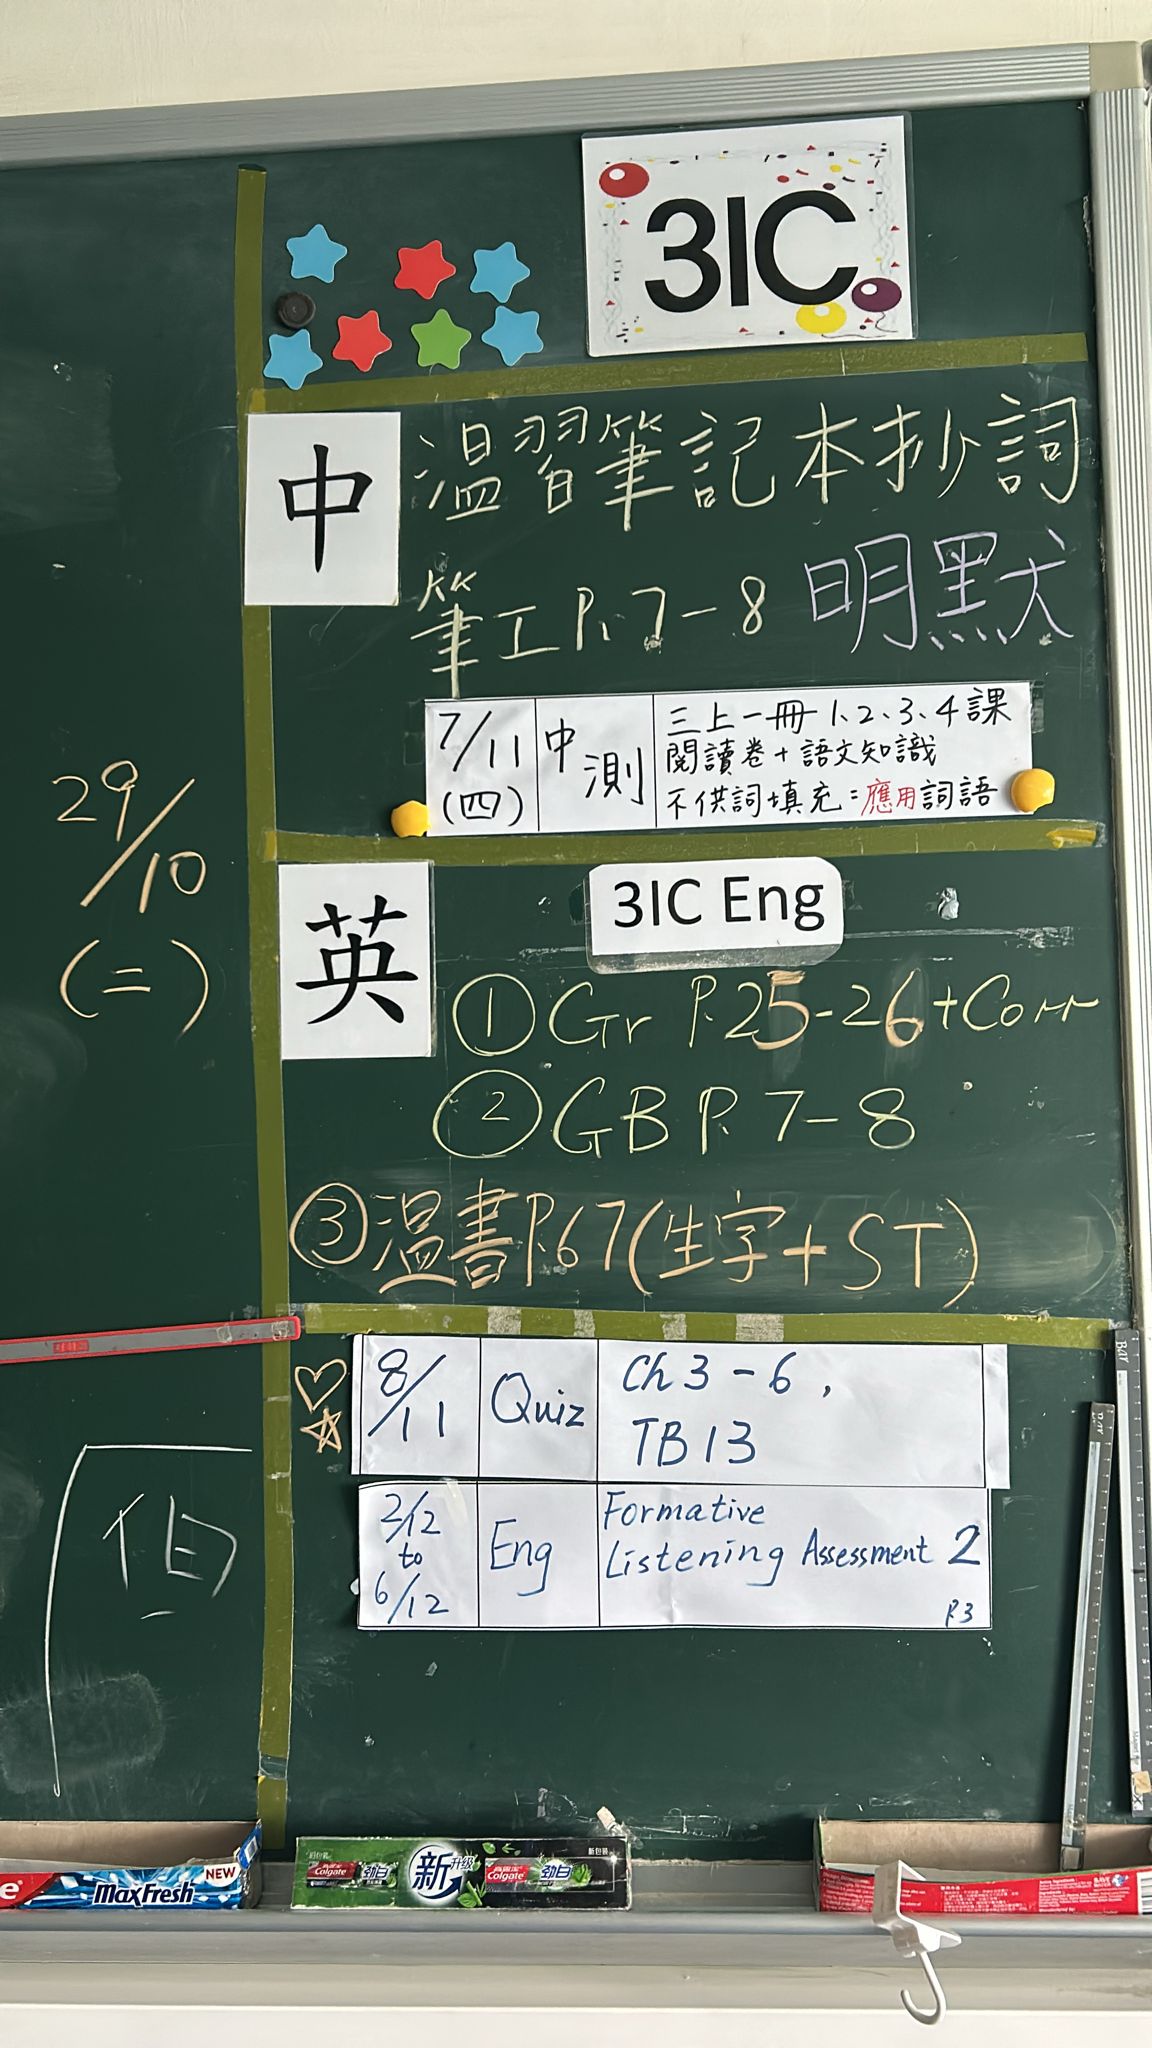 3IC
中
溫習筆記本抄詞
筆工 P.7-8 明默
7/11
(四)
中測
三上一冊 1、2、3、4課
閱讀卷+語文知識
不供詞填充:應用詞語
29/10
(二)
英
3IC Eng
① Gr P.25-26+Corr
② GB P.7-8
③ 溫書P.67(生字+ST)
8/11
Quiz
Ch 3-6,
TB 13
2/12
to
6/12
Eng
Formative
Listening Assessment 2
P.3
MaxFresh
NEW
Colgate
劲白
新升级
Colgate
劲白
新包装